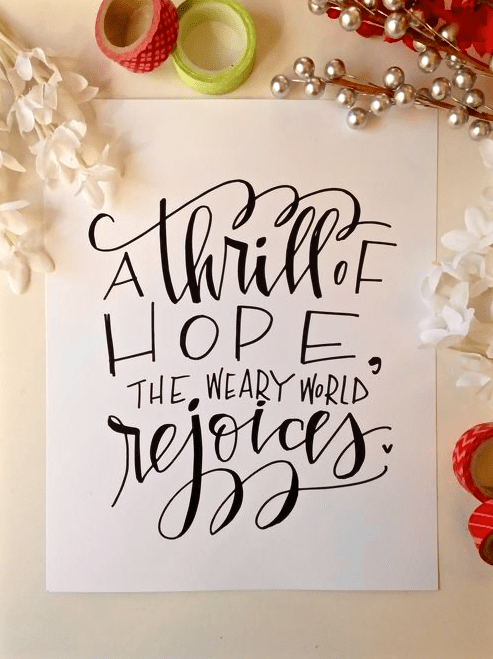 A thrill OF
HOPE,
THE WEARY WORLD
rejoices